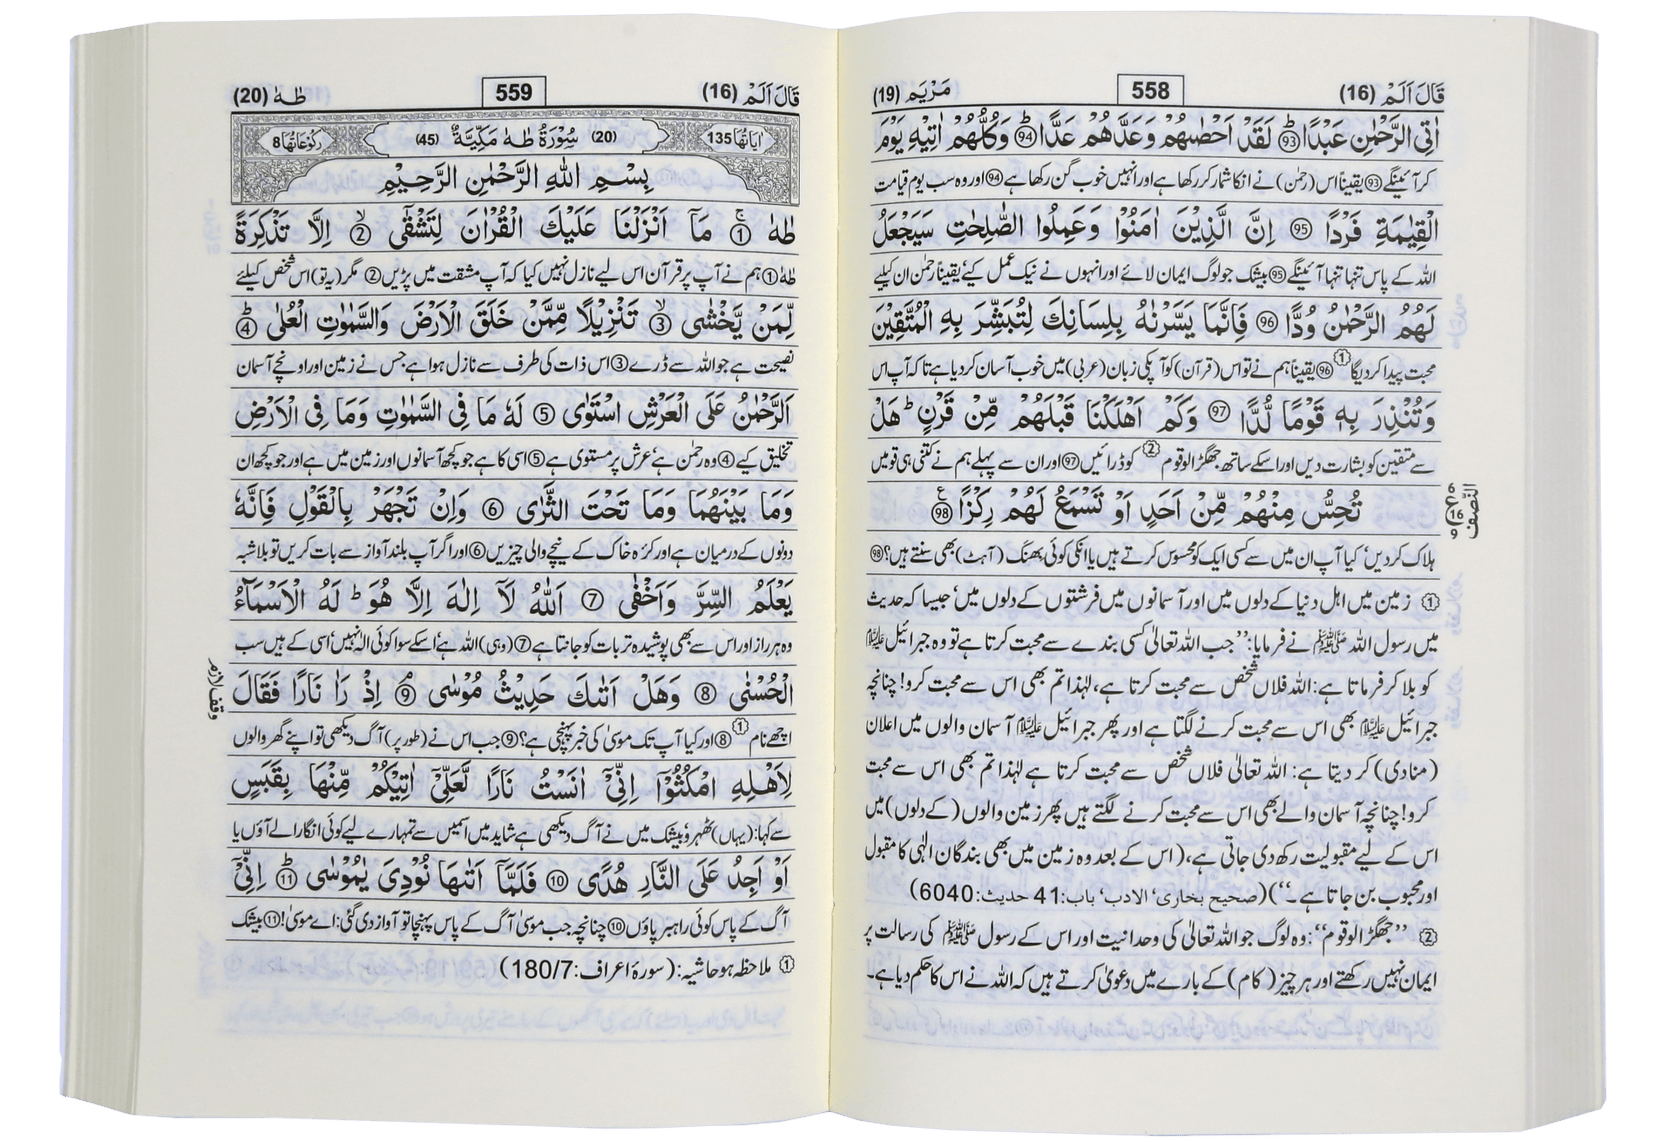 قَالَ اَلَمْ (16)
558
مَرْيَم (19)
اٰتِی الرَّحْمٰنِ عَبْدًا ؕ۹۳ لَقَدْ اَحْصٰىهُمْ وَعَدَّهُمْ عَدًّا ؕ۹۴ وَكُلُّهُمْ اٰتِيْهِ يَوْمَ
کر آئینگے 93 یقیناً اس (رحمٰن) نے انکا شمار کر رکھا ہے اور انہیں خوب گن رکھا ہے 94 اور وہ سب یوم قیامت
الْقِيٰمَةِ فَرْدًا 95 اِنَّ الَّذِيْنَ اٰمَنُوْا وَعَمِلُوا الصّٰلِحٰتِ سَيَجْعَلُ
اللہ کے پاس تنہا تنہا آئینگے 95 بیشک جو لوگ ایمان لائے اور انہوں نے نیک عمل کیے‘ یقیناً رحمٰن ان کیلیے
لَهُمُ الرَّحْمٰنُ وُدًّا 96 فَاِنَّمَا يَسَّرْنٰهُ بِلِسَانِكَ لِتُبَشِّرَ بِهِ الْمُتَّقِيْنَ
محبت پیدا کر دیگا 1 96 یقیناً ہم نے تو اس (قرآن) کو آپکی زبان (عربی) میں خوب آسان کر دیا ہے تاکہ آپ اس
وَتُنْذِرَ بِهٖ قَوْمًا لُّدًّا 97 وَكَمْ اَهْلَكْنَا قَبْلَهُمْ مِّنْ قَرْنٍ ؕ هَلْ
سے متقین کو بشارت دیں اور اسکے ساتھ جھگڑالو قوم 2 کو ڈرائیں 97 اور ان سے پہلے ہم نے کتنی ہی قومیں
تُحِسُّ مِنْهُمْ مِّنْ اَحَدٍ اَوْ تَسْمَعُ لَهُمْ رِكْزًا 98
النصف
ع
6
16
9
ہلاک کر دیں‘ کیا آپ ان میں سے کسی ایک کو محسوس کرتے ہیں یا انکی کوئی بھنک (آہٹ) بھی سنتے ہیں؟ 98
1 زمین میں اہل دنیا کے دلوں میں اور آسمانوں میں فرشتوں کے دلوں میں‘ جیسا کہ حدیث
میں رسول اللہ ﷺ نے فرمایا: ’’جب اللہ تعالیٰ کسی بندے سے محبت کرتا ہے تو وہ جبرائیل علیہ السلام
کو بلا کر فرماتا ہے: اللہ فلاں شخص سے محبت کرتا ہے، لہٰذا تم بھی اس سے محبت کرو! چنانچہ
جبرائیل علیہ السلام بھی اس سے محبت کرنے لگتا ہے اور پھر جبرائیل علیہ السلام آسمان والوں میں اعلان
(منادی) کر دیتا ہے: اللہ تعالیٰ فلاں شخص سے محبت کرتا ہے لہٰذا تم بھی اس سے محبت
کرو! چنانچہ آسمان والے بھی اس سے محبت کرنے لگتے ہیں پھر زمین والوں (کے دلوں) میں
اس کے لیے مقبولیت رکھ دی جاتی ہے، (اس کے بعد وہ زمین میں بھی بندگان الٰہی کا مقبول
اور محبوب بن جاتا ہے۔‘‘) (صحیح بخاری‘ الادب‘ باب: 41 حدیث: 6040)
2 ’’جھگڑالو قوم‘‘: وہ لوگ جو اللہ تعالیٰ کی وحدانیت اور اس کے رسول ﷺ کی رسالت پر
ایمان نہیں رکھتے اور ہر چیز (کام) کے بارے میں دعویٰ کرتے ہیں کہ اللہ نے اس کا حکم دیا ہے۔
قَالَ اَلَمْ (16)
559
طٰهٰ (20)
اٰيَاتُهَا 135
(20) سُوْرَةُ طٰهٰ مَكِّيَّةٌ (45)
رُكُوْعَاتُهَا 8
بِسْمِ اللّٰهِ الرَّحْمٰنِ الرَّحِيْمِ
طٰهٰ 1 مَاۤ اَنْزَلْنَا عَلَيْكَ الْقُرْاٰنَ لِتَشْقٰۤى 2 اِلَّا تَذْكِرَةً
طٰہٰ 1 ہم نے آپ پر قرآن اس لیے نازل نہیں کیا کہ آپ مشقت میں پڑیں 2 مگر (یہ تو) اس شخص کیلئے
لِّمَنْ يَّخْشٰى 3 تَنْزِيْلًا مِّمَّنْ خَلَقَ الْاَرْضَ وَالسَّمٰوٰتِ الْعُلٰى ؕ4
نصیحت ہے جو اللہ سے ڈرے 3 اس ذات کی طرف سے نازل ہوا ہے جس نے زمین اور اونچے آسمان
اَلرَّحْمٰنُ عَلَى الْعَرْشِ اسْتَوٰى 5 لَهٗ مَا فِى السَّمٰوٰتِ وَمَا فِى الْاَرْضِ
تخلیق کیے 4 وہ رحمٰن ہے‘ عرش پر مستوی ہے 5 اسی کا ہے جو کچھ آسمانوں اور زمین میں ہے اور جو کچھ ان
وَمَا بَيْنَهُمَا وَمَا تَحْتَ الثَّرٰى 6 وَاِنْ تَجْهَرْ بِالْقَوْلِ فَاِنَّهٗ
دونوں کے درمیان ہے اور کرۂ خاک کے نیچے والی چیزیں 6 اور اگر آپ بلند آواز سے بات کریں تو بلاشبہ
يَعْلَمُ السِّرَّ وَاَخْفٰى 7 اَللّٰهُ لَاۤ اِلٰهَ اِلَّا هُوَ ؕ لَهُ الْاَسْمَآءُ
وہ ہر راز اور اس سے بھی پوشیدہ تر بات کو جانتا ہے 7 (وہی) اللہ ہے‘ اسکے سوا کوئی الٰہ نہیں‘ اسی کے ہیں سب
الْحُسْنٰى 8 وَهَلْ اَتٰىكَ حَدِيْثُ مُوْسٰى 9 اِذْ رَاٰ نَارًا فَقَالَ
وقف لازم
اچھے نام 1 8 اور کیا آپ تک موسٰی کی خبر پہنچی ہے؟ 9 جب اس نے (طور پر) آگ دیکھی تو اپنے گھر والوں
لِاَهْلِهِ امْكُثُوْۤا اِنِّىْۤ اٰنَسْتُ نَارًا لَّعَلِّىْۤ اٰتِيْكُمْ مِّنْهَا بِقَبَسٍ
سے کہا: (یہاں) ٹھہرو‘ بیشک میں نے آگ دیکھی ہے شاید میں اسمیں سے تمہارے لیے کوئی انگارا لے آؤں یا
اَوْ اَجِدُ عَلَى النَّارِ هُدًى 10 فَلَمَّاۤ اَتٰىهَا نُوْدِىَ يٰمُوْسٰى ؕ11 اِنِّىْۤ
آگ کے پاس کوئی راہبر پاؤں 10 چنانچہ جب موسٰی آگ کے پاس پہنچا تو آواز دی گئی: اے موسٰی! 11 بیشک
1 ملاحظہ ہو حاشیہ: (سورۂ اعراف: 180/7)